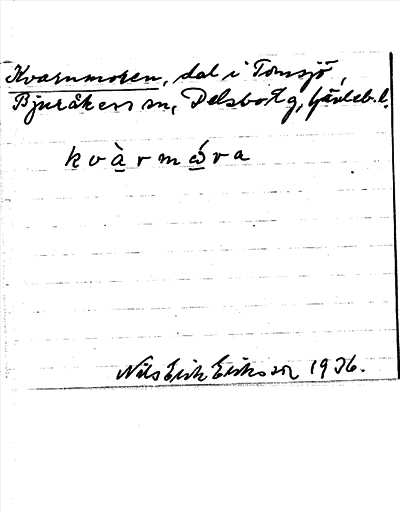 Kvarnmoren, dal i Tomsjö,
Bjuråkers sn, Delsbo tg, Gävleb. l.
kvàrmóra
Nils Erik Eriksson 1936.